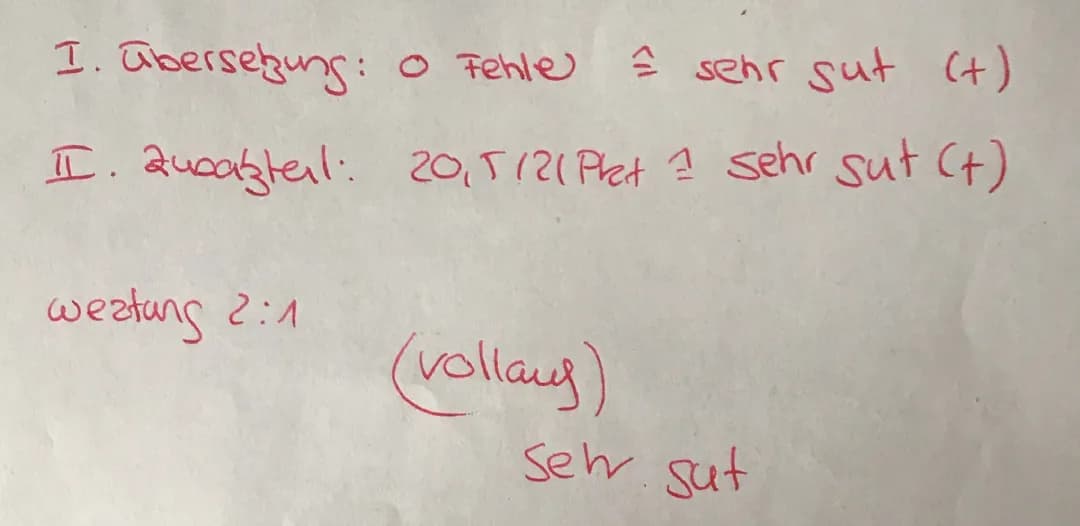 I. Übersetzung: 0 Fehler ≙ sehr gut (+)
II. Zusatzteil: 20,5/21 Pkt ≙ sehr gut (+)
Wertung 2:1
(vollauf)
sehr gut